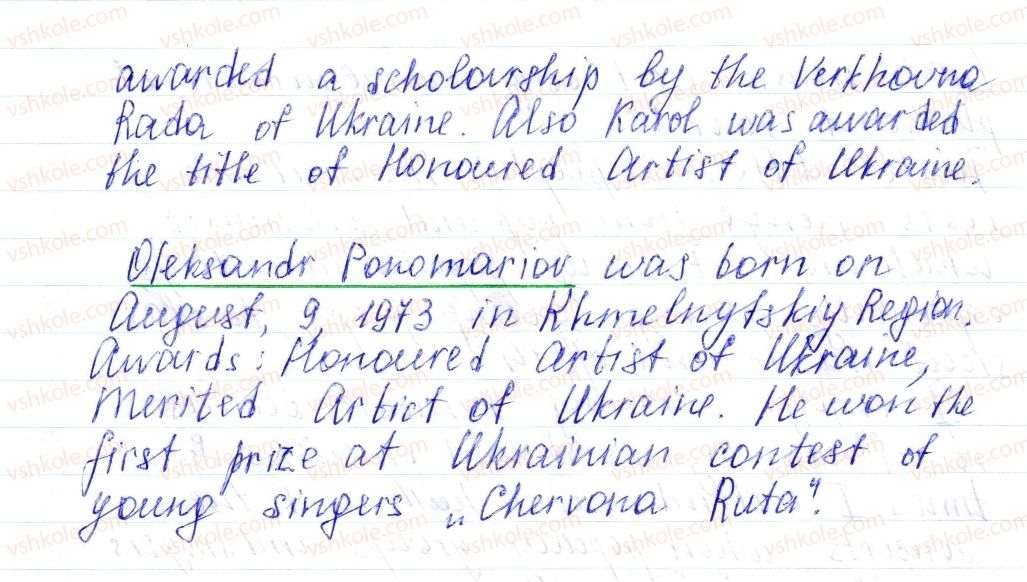 awarded a scholarship by the Verkhovna
Rada of Ukraine. Also Karol was awarded
the title of Honoured Artist of Ukraine.
Oleksandr Ponomariov was born on
August, 9, 1973 in Khmelnytskiy Region.
Awards: Honoured Artist of Ukraine,
Merited Artict of Ukraine. He won the
first prize at Ukrainian contest of
young singers „Chervona Ruta".